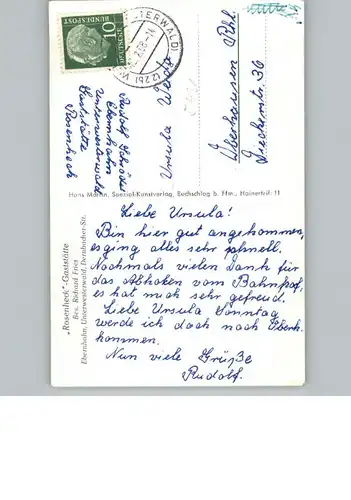 DEUTSCHE
BUNDESPOST
10
(UNTERWESTERWALD)
(22b)
Rudolf Schröder
Ebernhahn
Unterwesterwald
Gaststätte
Rosenheck
Ursula
Oberhausen Rhl.
30
Hans Martin, Spezial-Kunstverlag, Buchschlag b. Ffm., Hainertrift 11
„Rosenheck"-Gaststätte
Bes. Richard Fries
Ebernhahn, Unterwesterwald, Dernbacher-Str.
Liebe Ursula!
Bin hier gut angekommen,
es ging alles sehr schnell.
Nochmals vielen Dank für
das abholen vom Bahnhof,
es hat mich sehr gefreud.
Liebe Ursula Sonntag
werde ich doch nach Oberh.
kommen.
Nun viele Grüße
Rudolf.